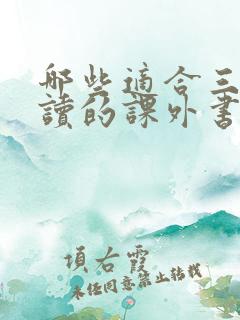 哪些適合三
讀的課外書
項右霞
未经同意禁止转载